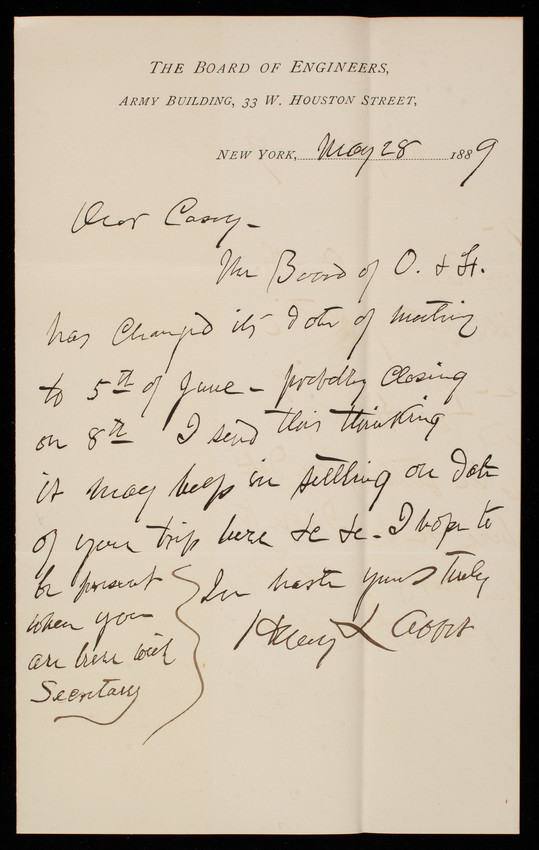 THE BOARD OF ENGINEERS,
ARMY BUILDING, 33 W. HOUSTON STREET,
NEW YORK, May 28 1889
Dear Casey -
The Board of O. & F.
has changed its date of meeting
to 5th of June - probably closing
on 8th I send this thinking
it may help in settling on date
of your trip here &c &c - I hope to
be present
when you
are here with
Secretary
In haste yours truly
Henry L Abbot